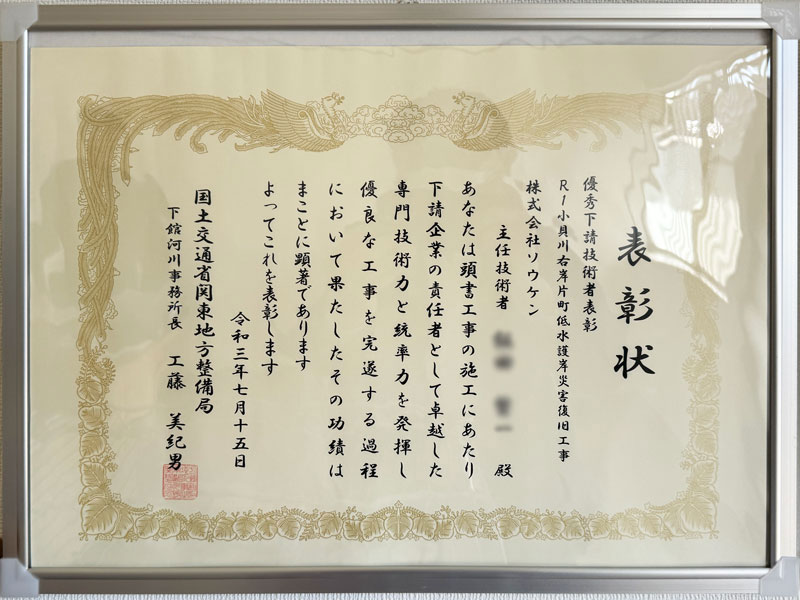 表彰状
優秀下請技術者表彰
R1小貝川右岸片町低水護岸災害復旧工事
株式会社ソウケン
主任技術者 殿
あなたは頭書工事の施工にあたり
下請企業の責任者として卓越した
専門技術力と統率力を発揮し
優良な工事を完遂する過程
において果たしたその功績は
まことに顕著であります
よってこれを表彰します
令和三年七月十五日
国土交通省関東地方整備局
下館河川事務所長 工藤 美紀男